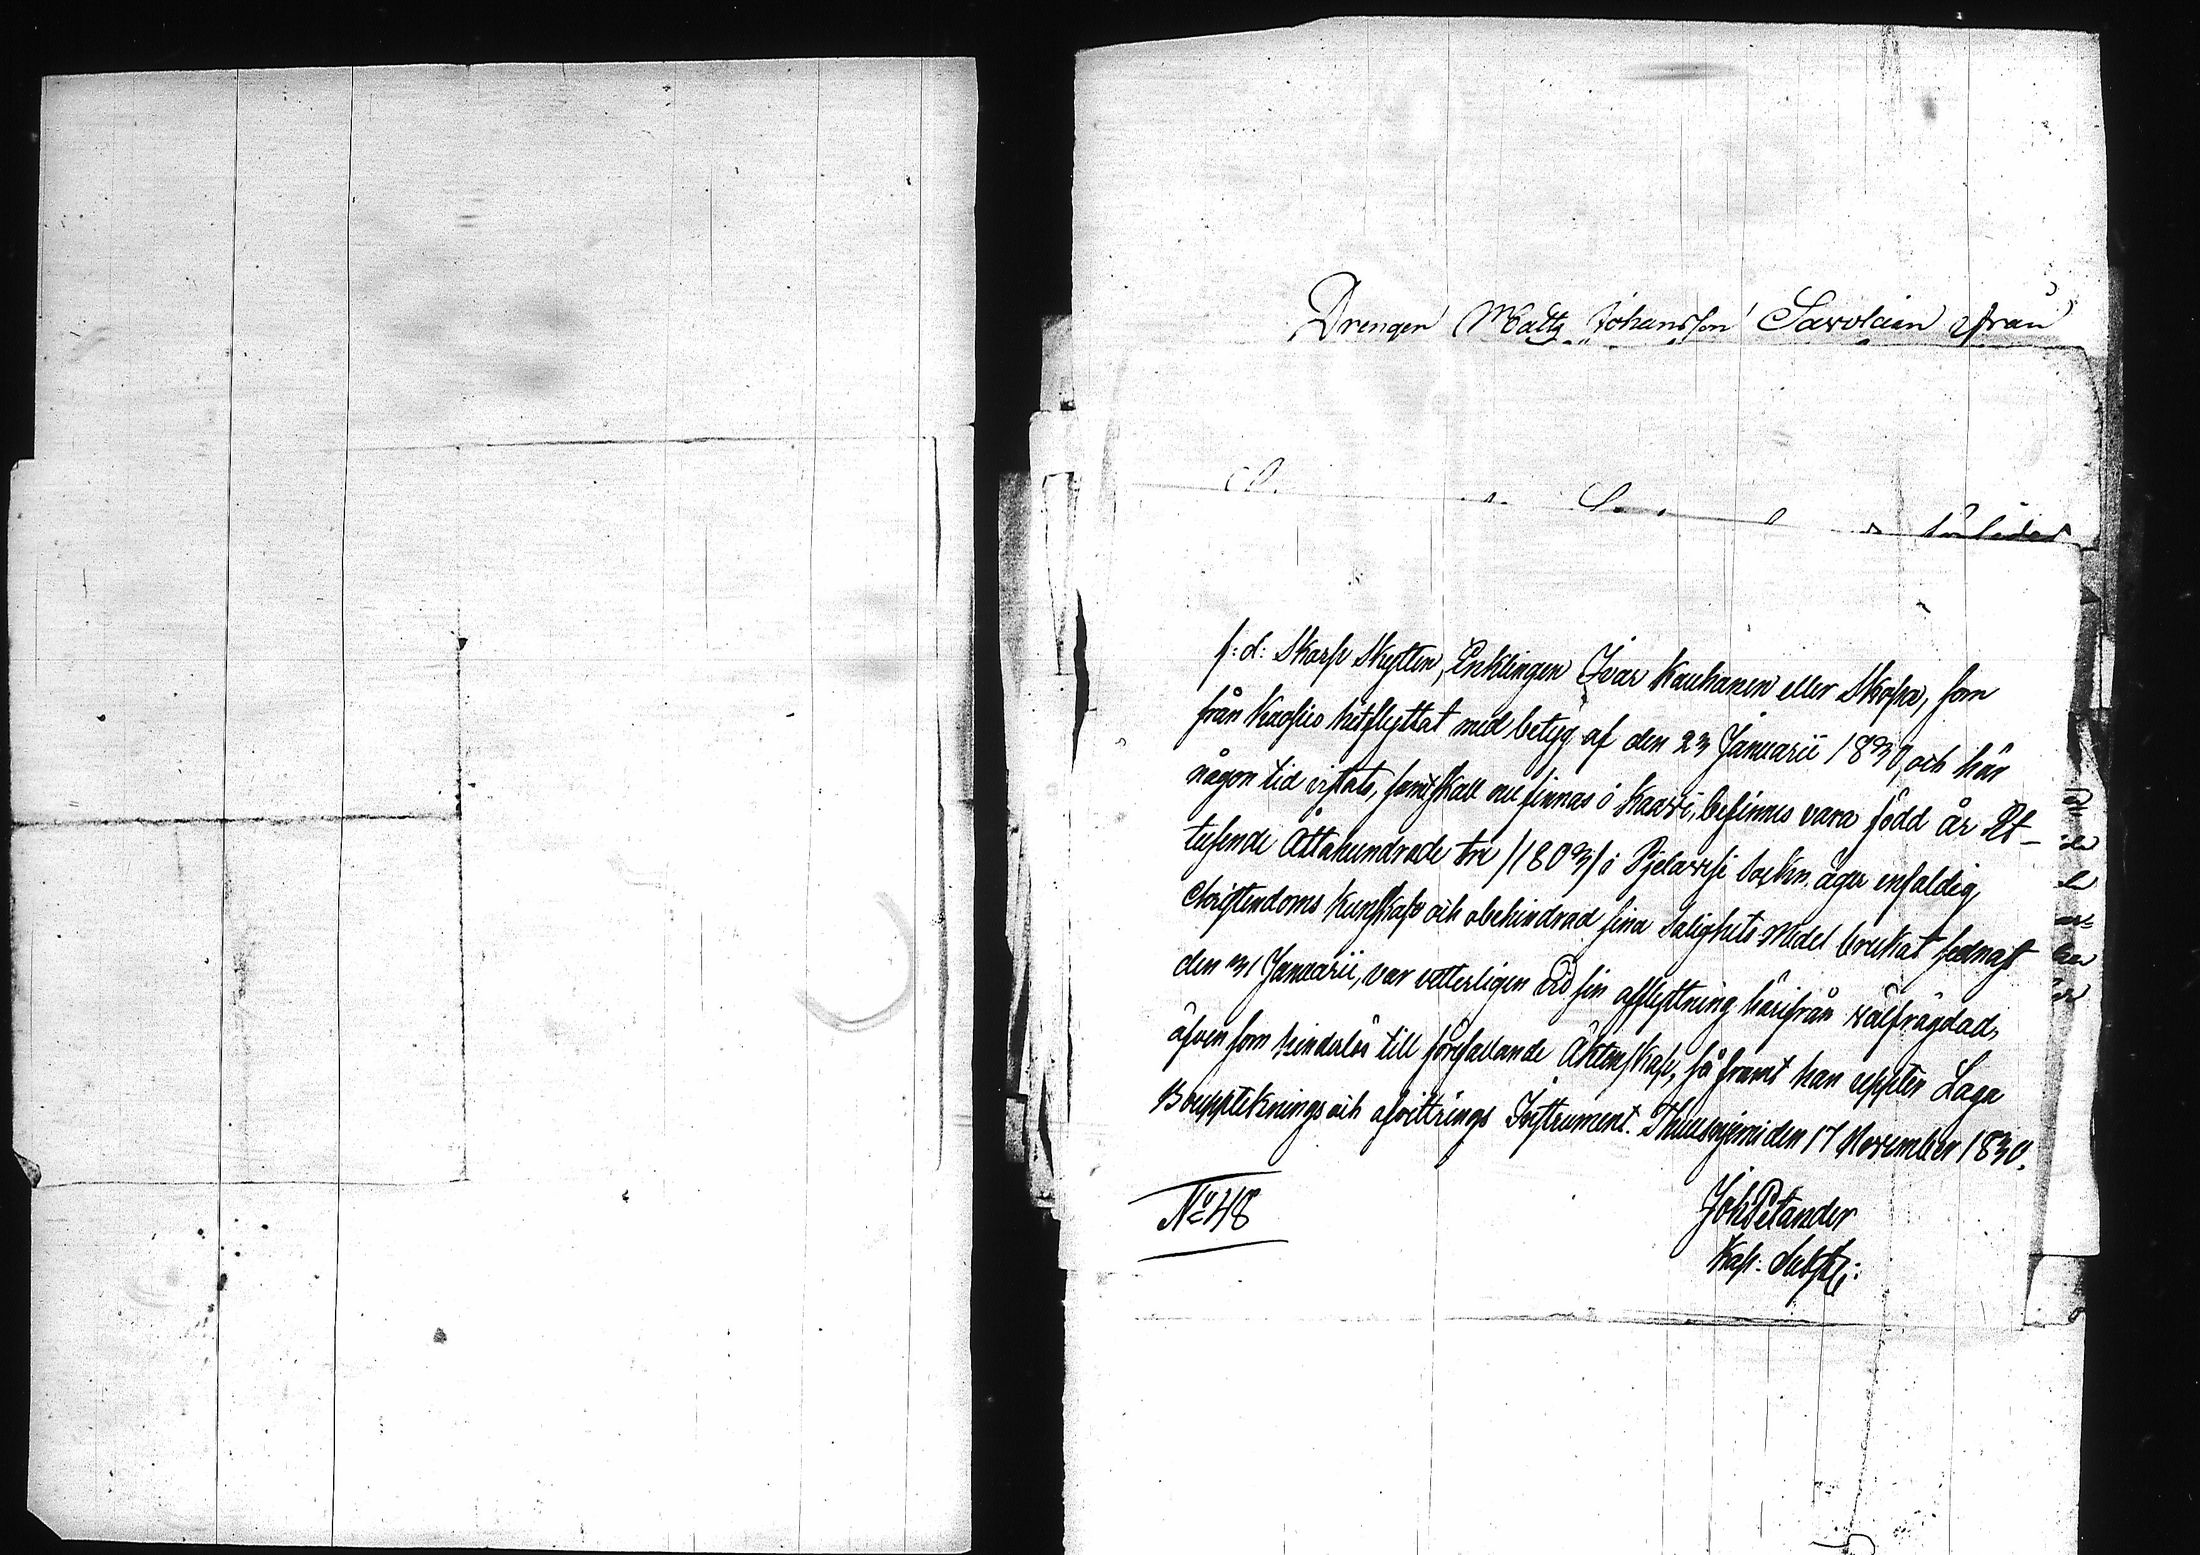 Drengen Matts Johansson Savolain ifrån
förliden
f: d: Skarp Skytten, Enklingen Ivar Kauhanen eller Skopa, som
från Kuopio hitflyttat med betyg af den 23 Januarii 1830, och här
någon tid vistats, samt skall nu finnas i Kaavi, befinnes vara född år Et-
tusende Åttahundrade tre /1803/ i Pjelavesi Socken, äger enfaldig
Christendoms Kunskap och obehindrad sina Salighets Medel brukat sednast
den 31 Januarii, var vetterligen vid sin afflyttning härifrån välfrägdad,
äfven som hinderlös till förefallande Äktenskap, så framt han uppter Laga
Bouppteknings och afvittrings Instrument. Thuusniemi den 17 November 1830.
No 48
Joh Petander
Kap: Subst: